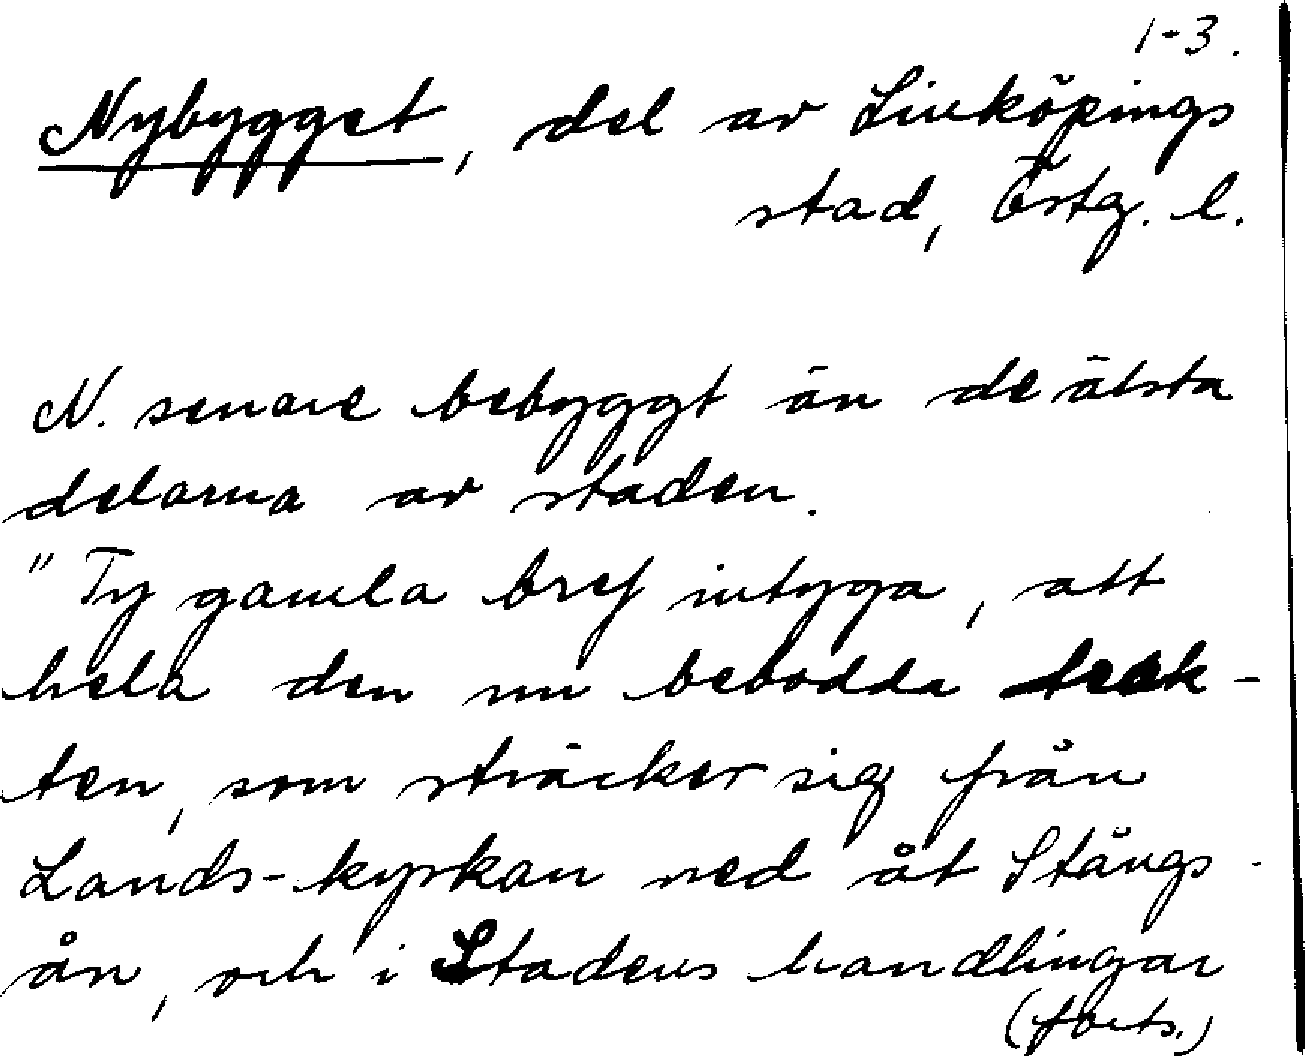 1-3.
Nybygget, del av Linköpings
stad, Östg. l.
N. senare bebyggt än de älsta
delarna av staden.
"Ty gamla bref intyga, att
hela den nu bebodda trak-
ten, som sträcker sig från
Lands-kyrkan ned åt Stångs-
ån, och i Stadens handlingar
(forts.)